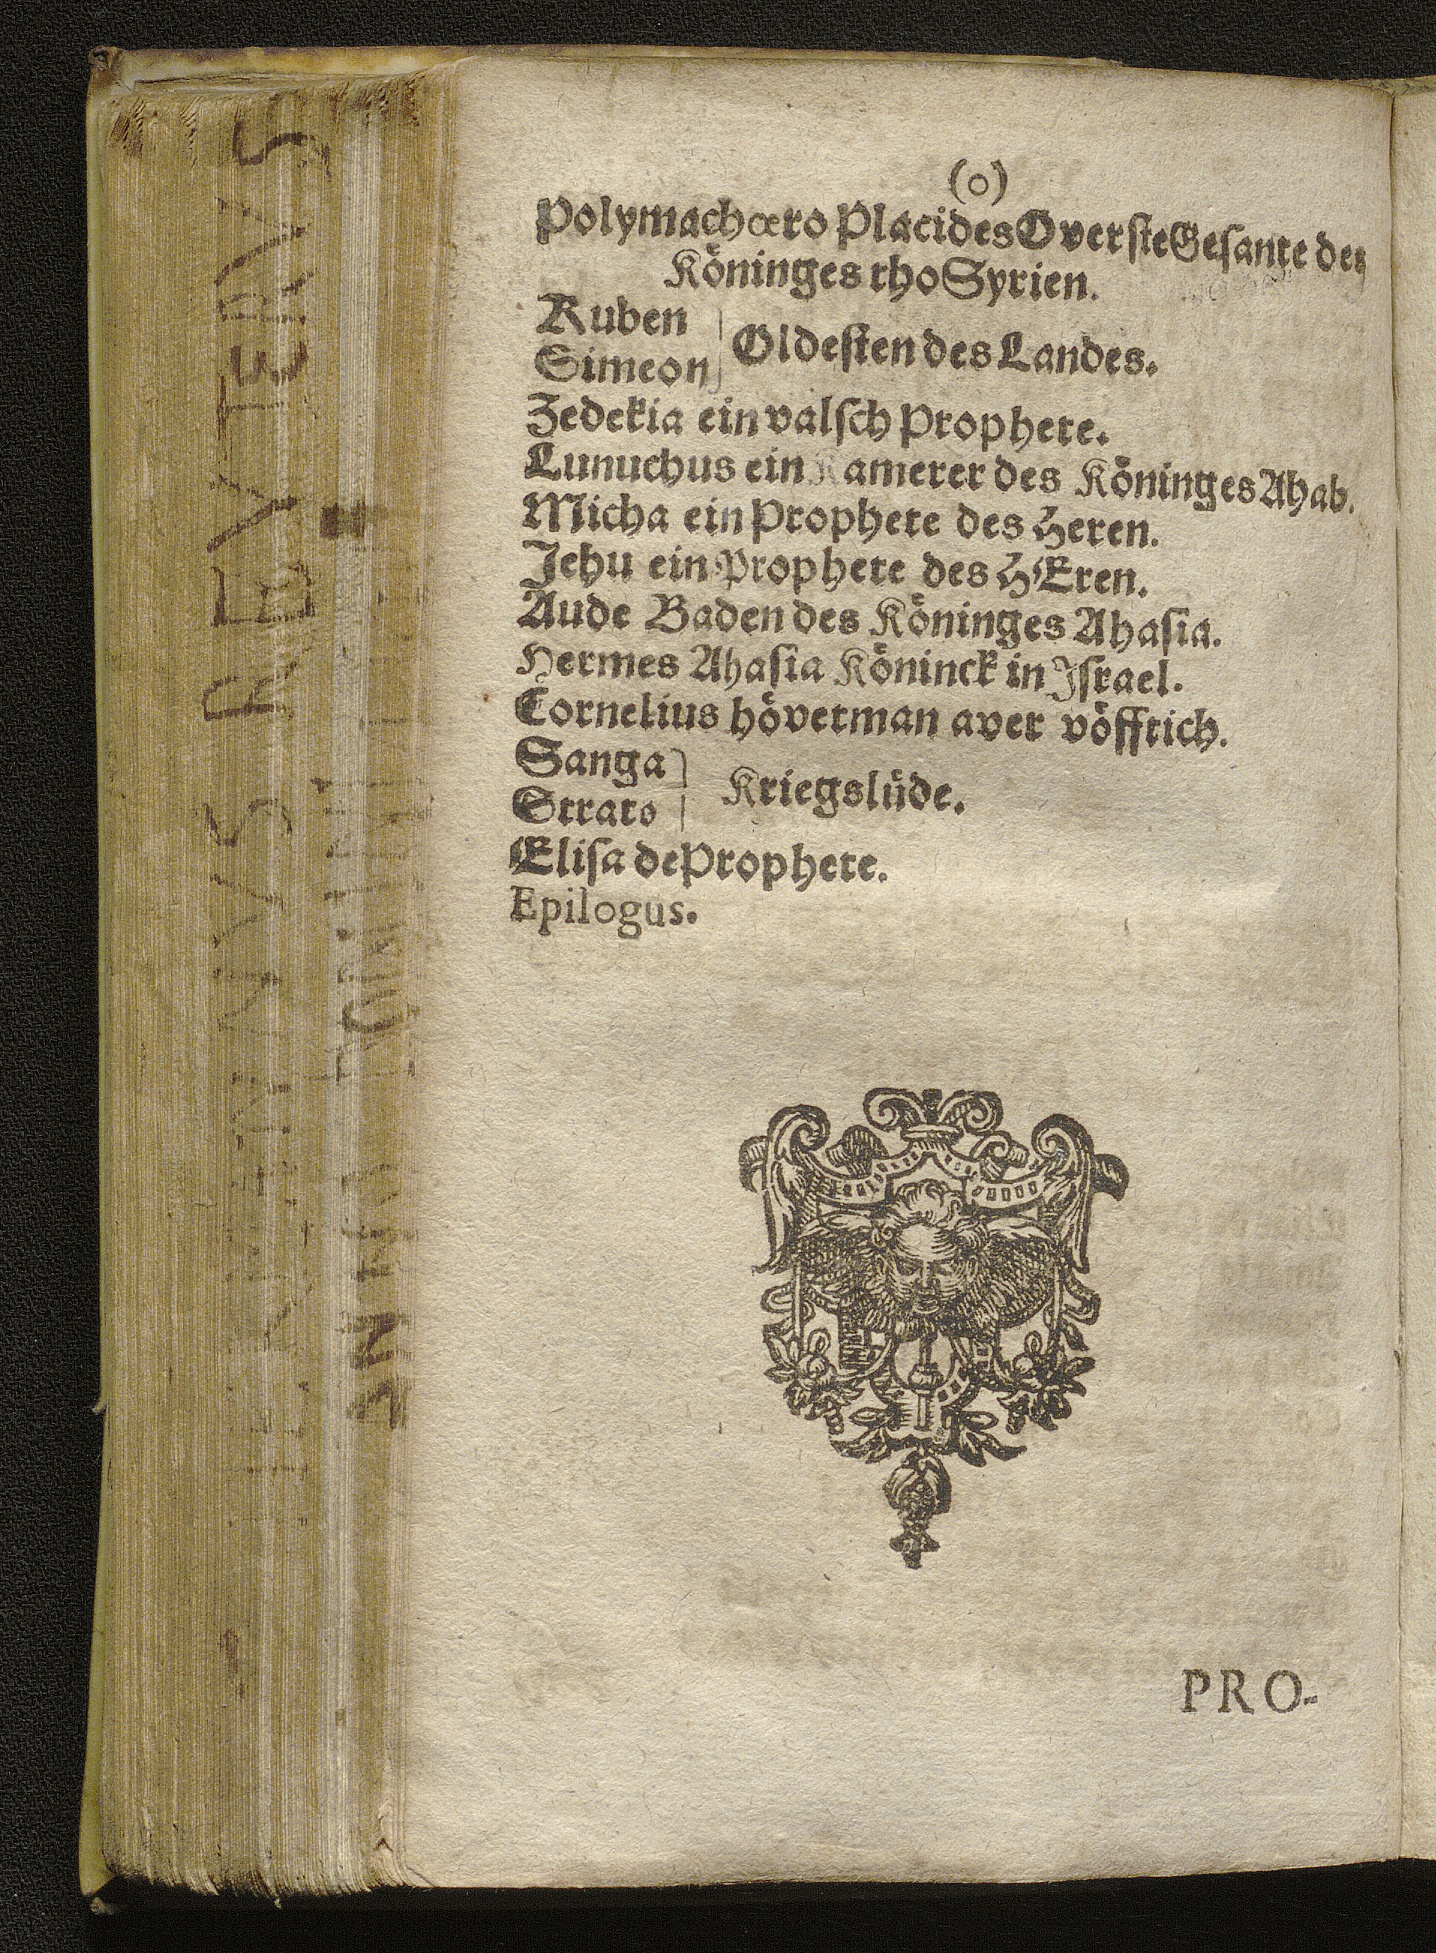 (o)
Polymachœro Placides Overste Gesante des
Köninges tho Syrien.
Ruben
Simeon
Oldesten des Landes.
Zedekia ein valsch Prophete.
Eunuchus ein Kamerer des Köninges Ahab.
Micha ein Prophete des Heren.
Jehu ein Prophete des HEren.
Aude Baden des Köninges Ahasia.
Hermes Ahasia Köninck in Israel.
Cornelius hövetman aver vöfftich.
Sanga
Strato
Kriegslüde.
Elisa de Prophete.
Epilogus.
PRO-